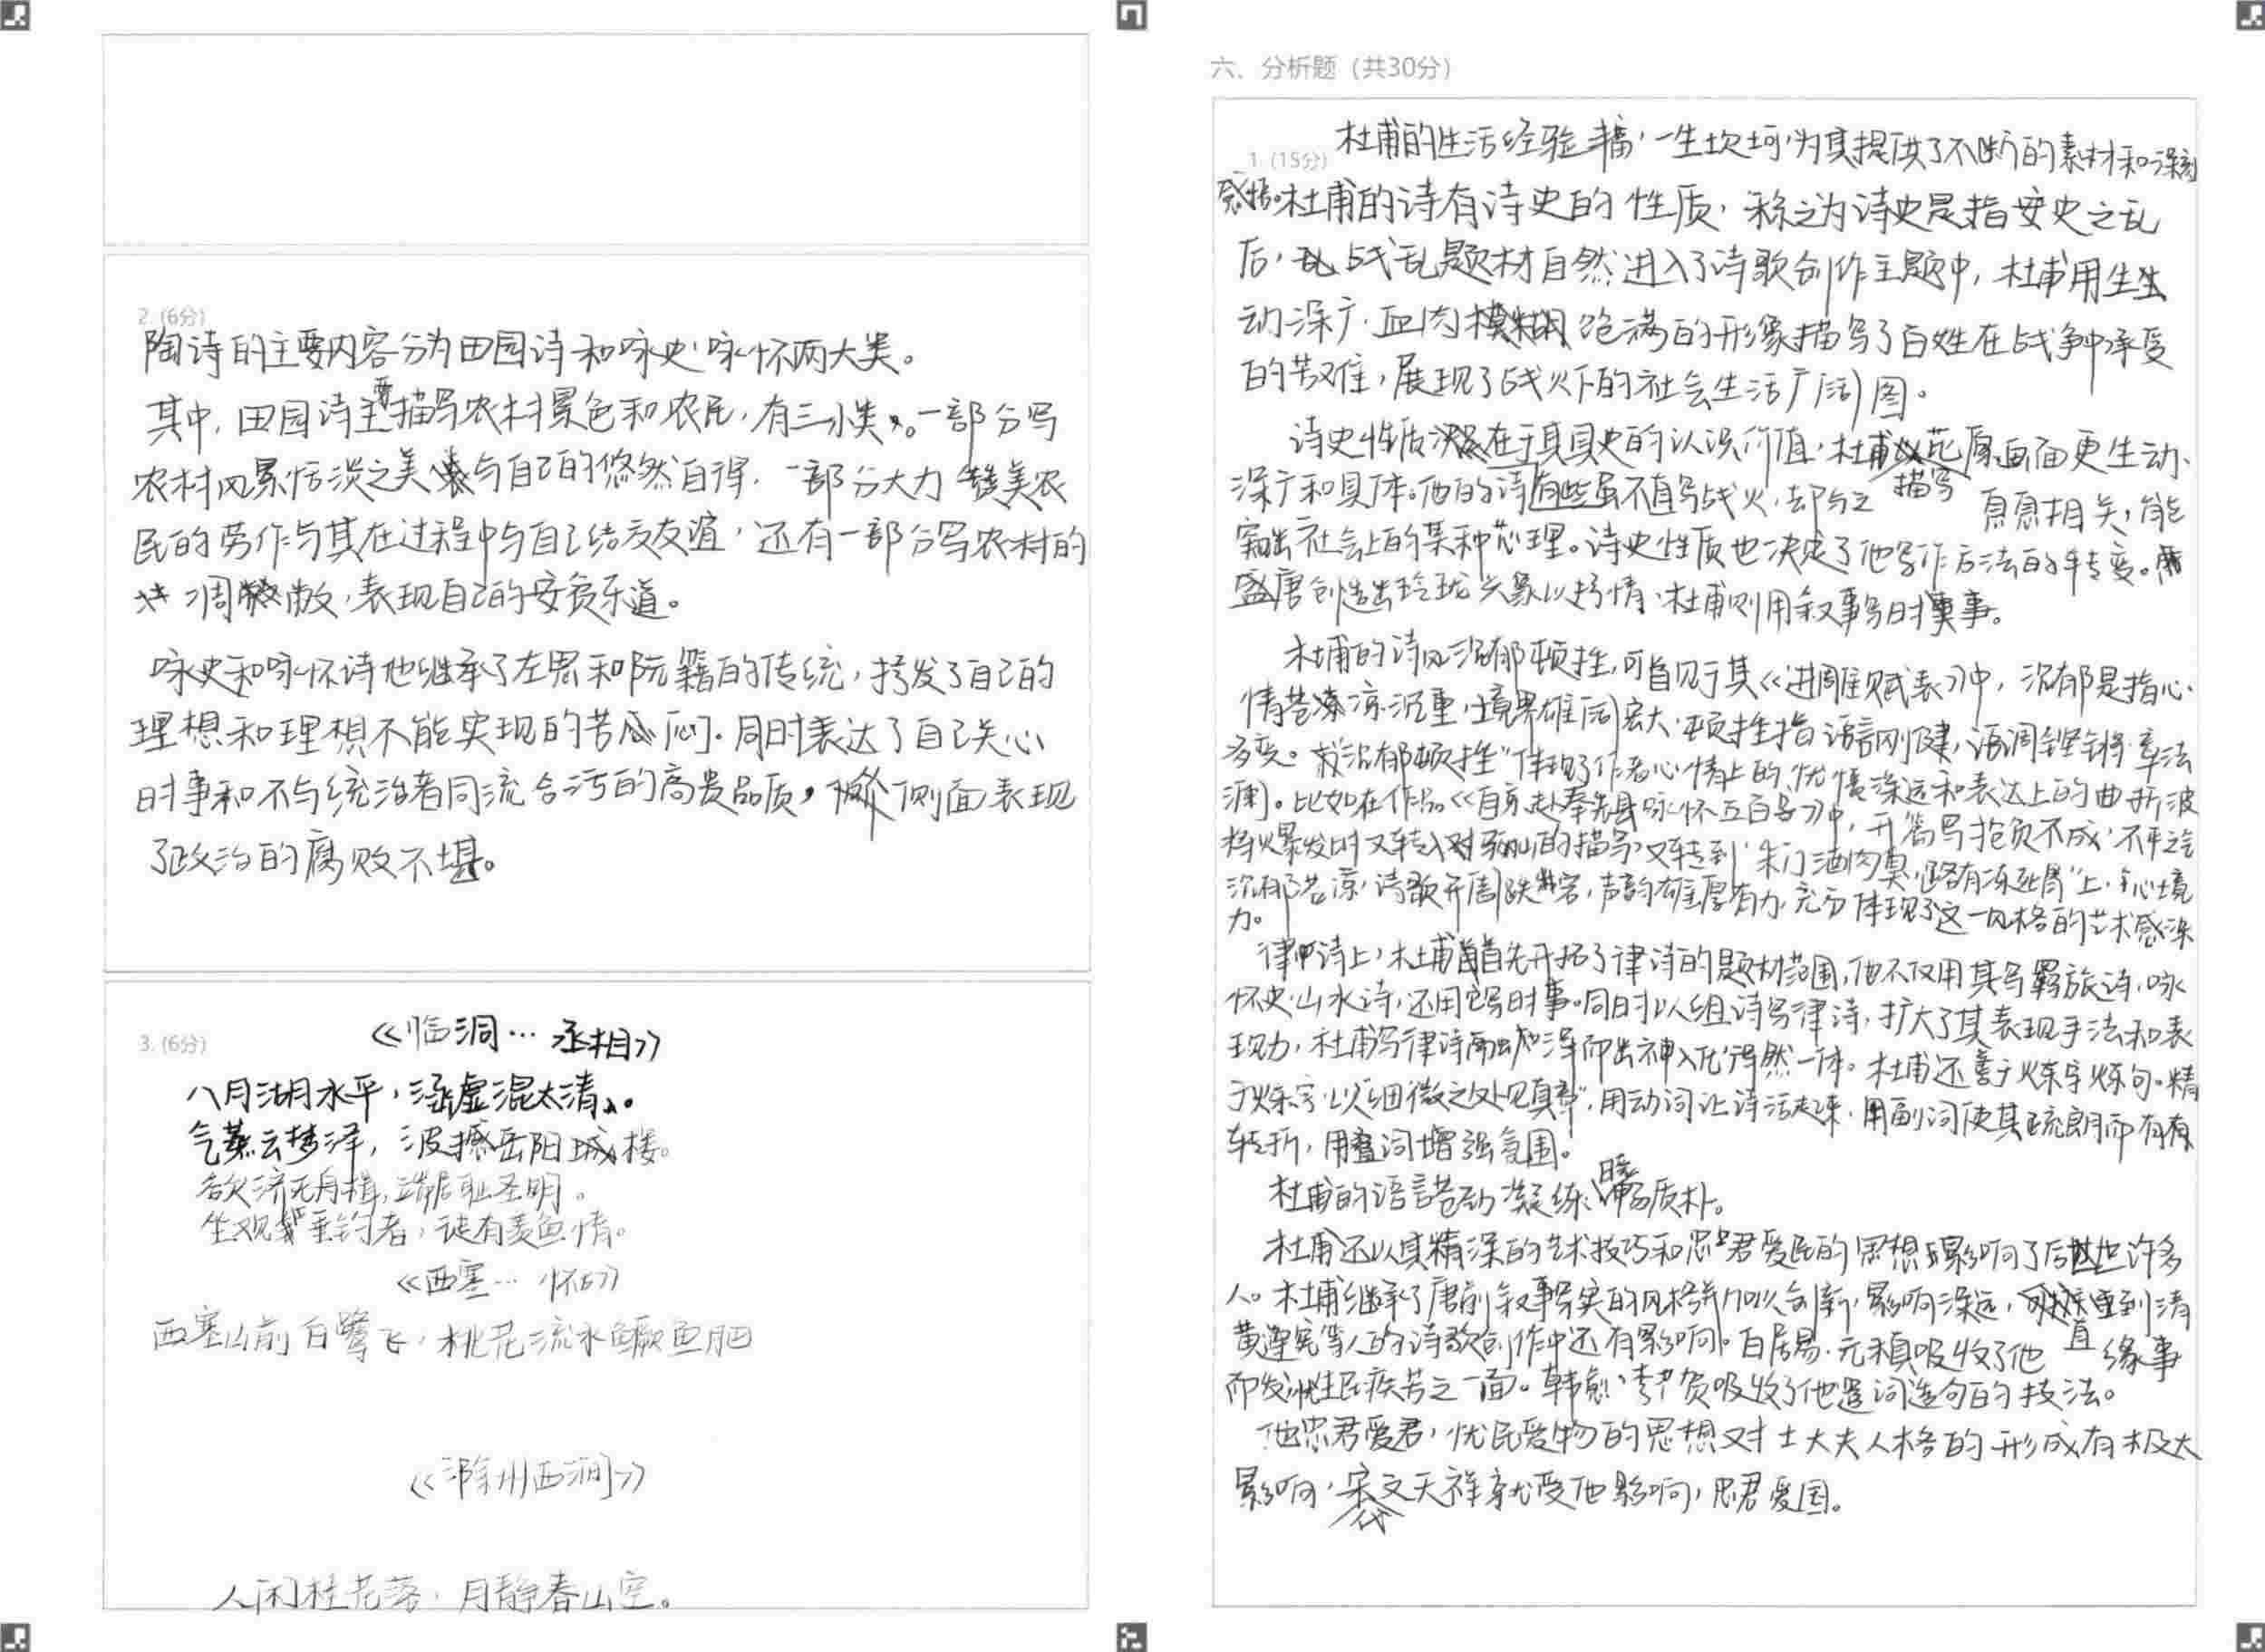 2. (6分)
陶诗的主要内容分为田园诗和咏史、咏怀两大类。
其中，田园诗主要描写农村景色和农民，有三小类。一部分写
农村风景恬淡之美与自己的悠然自得，一部分大力赞美农
民的劳作与其在过程中与自己结交友谊，还有一部分写农村的
凋敝，表现自己的安贫乐道。
咏史和咏怀诗他继承了左思和阮籍的传统，抒发了自己的
理想和理想不能实现的苦闷。同时表达了自己关心
时事和不与统治者同流合污的高贵品质，侧面表现
了政治的腐败不堪。
3. (6分)
《临洞… 丞相》
八月湖水平，涵虚混太清。
气蒸云梦泽，波撼岳阳城。
欲济无舟楫，端居耻圣明。
坐观垂钓者，徒有羡鱼情。
《西塞… 怀古》
西塞山前白鹭飞，桃花流水鳜鱼肥
《滁州西涧》
人闲桂花落，月静春山空。
六、分析题（共30分）
1. (15分)
杜甫的生活经验丰富，一生坎坷，为其提供了不断的素材和深刻
感悟。杜甫的诗有诗史的性质，称之为诗史是指安史之乱
后，战乱题材自然进入了诗歌创作主题中，杜甫用生
动深广、血肉饱满的形象描写了百姓在战争中承受
的苦难，展现了战火下的社会生活广阔图。
诗史性质在于其具史的认识价值，杜甫描写画面更生动、
深广和具体。他的诗有些虽不直写战火，却与之息息相关，能
突出社会上的某种心理。诗史性质也决定了他写作方法的转变。
盛唐创造出玲珑兴象以抒情，杜甫则用叙事写时事。
杜甫的诗风沉郁顿挫，可自见于其《进雕赋表》中，沉郁是指心
情苍凉沉重，境界雄阔宏大，顿挫指语言刚健，语调铿锵，章法
多变。故"沉郁顿挫"体现了作者心情上的忧愤深远和表达上的曲折波
澜。比如在作品《自京赴奉先县咏怀五百字》中，开篇写抱负不成，不平之气
将火爆发时又转入对骊山的描写，又转到"朱门酒肉臭，路有冻死骨"上，心境
沉郁苍凉，诗歌开阖跌宕，声韵雄厚有力，充分体现了这一风格的艺术感染
力。
律诗上，杜甫首先开拓了律诗的题材范围，他不仅用其写羁旅诗、咏
怀史、山水诗，还用它写时事。同时以组诗写律诗，扩大了其表现手法和表
现力，杜甫写律诗而出神入化，浑然一体。杜甫还善于炼字炼句。精
于炼字，以"细微之处见真章"，用动词让诗活起来，用副词使其疏朗而有
转折，用叠词增强氛围。
杜甫的语言苍劲凝练、畅质朴。
杜甫还以其精深的艺术技巧和忠君爱民的思想影响了后世许多
人。杜甫继承了唐前叙事写实的风格并加以创新，影响深远，直到清
黄遵宪等人的诗歌创作中还有影响。白居易、元稹吸收了他缘事
而发忧生民疾苦之一面。韩愈、李贺吸收了他遣词造句的技法。
他忠君爱君，忧民爱物的思想又对士大夫人格的形成有极大
影响，宋代文天祥就受他影响，忠君爱国。